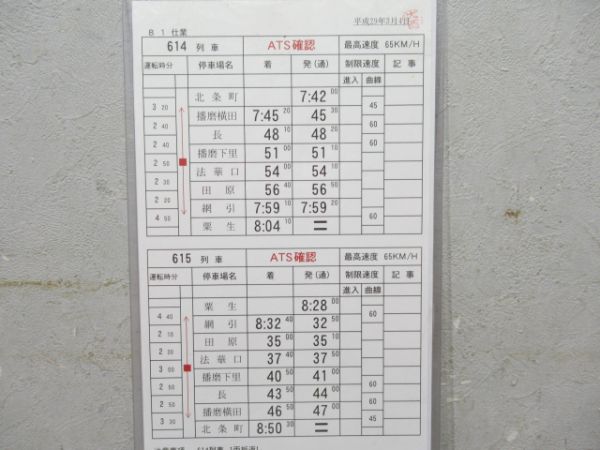 平成29年3月4日
B 1 仕業
614 列車 ATS確認 最高速度 65KM/H
運転時分 停車場名 着 発(通) 制限速度 記事
進入 曲線
北条町 7:42 00
3 20 45
播磨横田 7:45 20 45 30
2 40 60
長 48 10 48 20
2 40 60
播磨下里 51 00 51 10
2 50
法華口 54 00 54 10
2 30
田原 56 40 56 50
2 20
網引 7:59 10 7:59 20
4 50 60
粟生 8:04 10 =
615 列車 ATS確認 最高速度 65KM/H
運転時分 停車場名 着 発(通) 制限速度 記事
進入 曲線
粟生 8:28 00
4 40 60
網引 8:32 40 32 50
2 10
田原 35 00 35 10
2 30
法華口 37 40 37 50
3 00
播磨下里 40 50 41 00
2 50 60
長 43 50 44 00
2 50 60
播磨横田 46 50 47 00
3 30 45
北条町 8:50 30 =